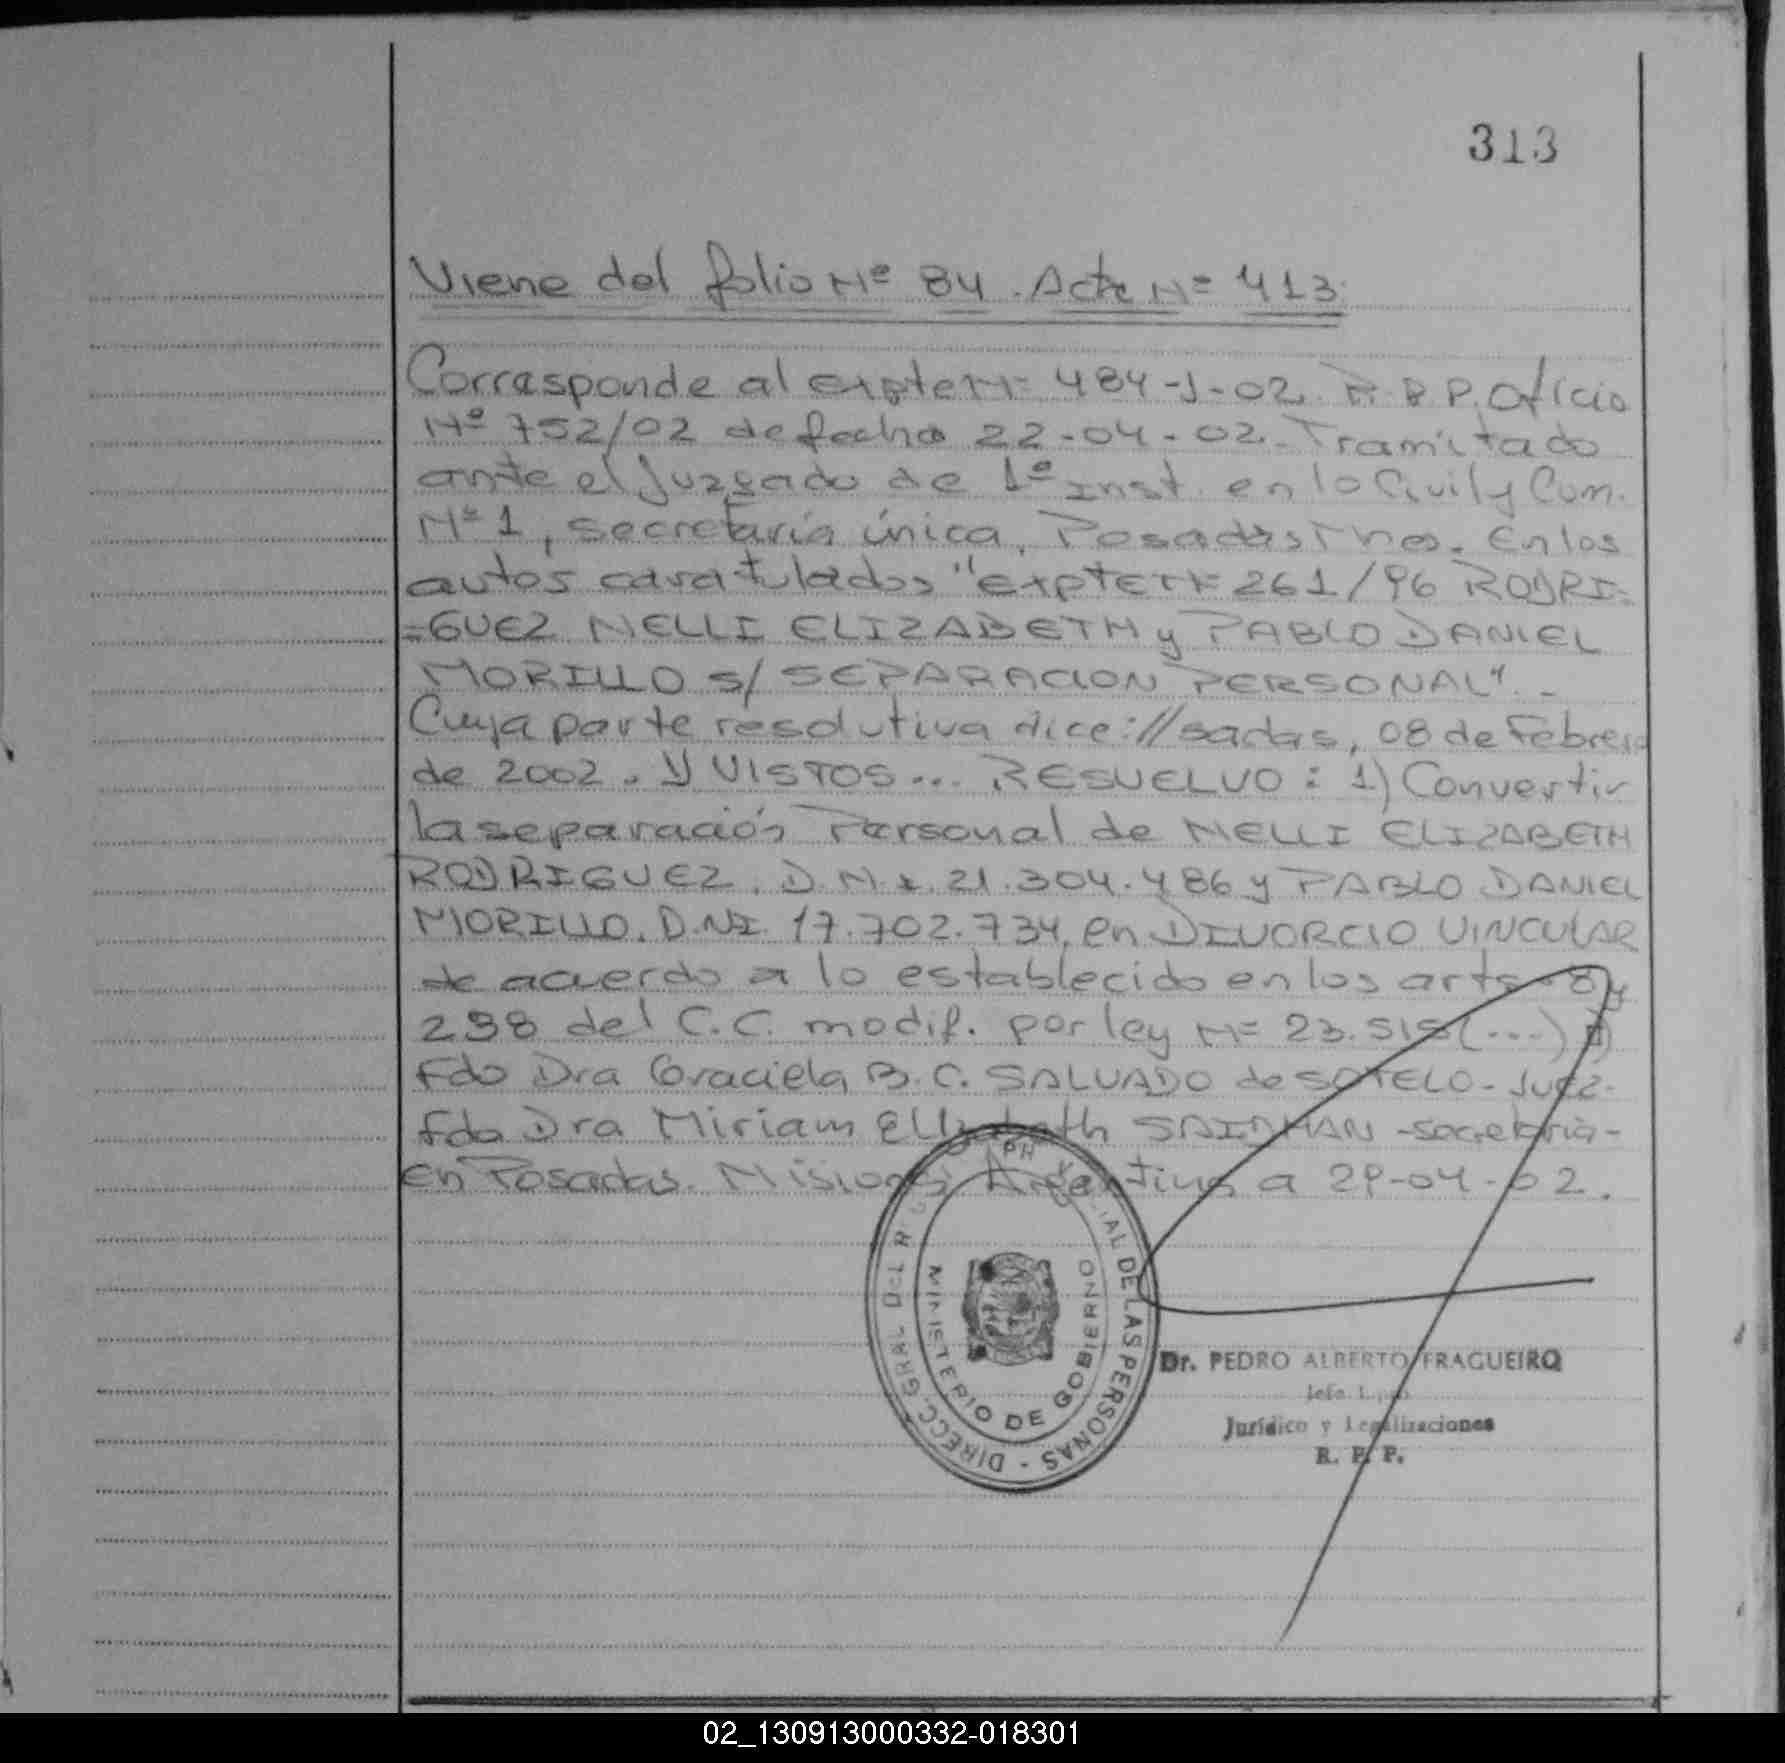 313
Viene del folio Nº 84. Acta Nº 413.
Corresponde al expte Nº 484-J-02. R.P.P. Oficio
Nº 752/02 de fecha 22-04-02. Tramitado
ante el Juzgado de 1º Inst. en lo Civil y Com.
Nº 1, secretaría única, Posadas, Mnes. En los
autos caratulados "expte Nº 261/96 RODRI=
=GUEZ NELLI ELIZABETH y PABLO DANIEL
MORILLO S/ SEPARACION PERSONAL". -
Cuya parte resolutiva dice: //sadas, 08 de Febrero
de 2002. Y VISTOS... RESUELVO: 1) Convertir
la separación Personal de NELLI ELIZABETH
RODRIGUEZ. D.N.I. 21.304.486 y PABLO DANIEL
MORILLO. D.N.I. 17.702.734, en DIVORCIO VINCULAR
de acuerdo a lo establecido en los arts. 8 y
238 del C.C. modif. por ley Nº 23.515 (...)
Fdo Dra Graciela B. C. SALVADO de SOTELO - Juez -
Fdo Dra Miriam Elizabeth -secretaria-
en Posadas. Misiones Argentina a 29-04-02.
DIRECC. GRAL. DEL R. DE LAS PERSONAS -
MINISTERIO DE GOBIERNO
Dr. PEDRO ALBERTO FRAGUEIRO
Jefe
Jurídico y Legalizaciones
R. P. P.
02_130913000332-018301